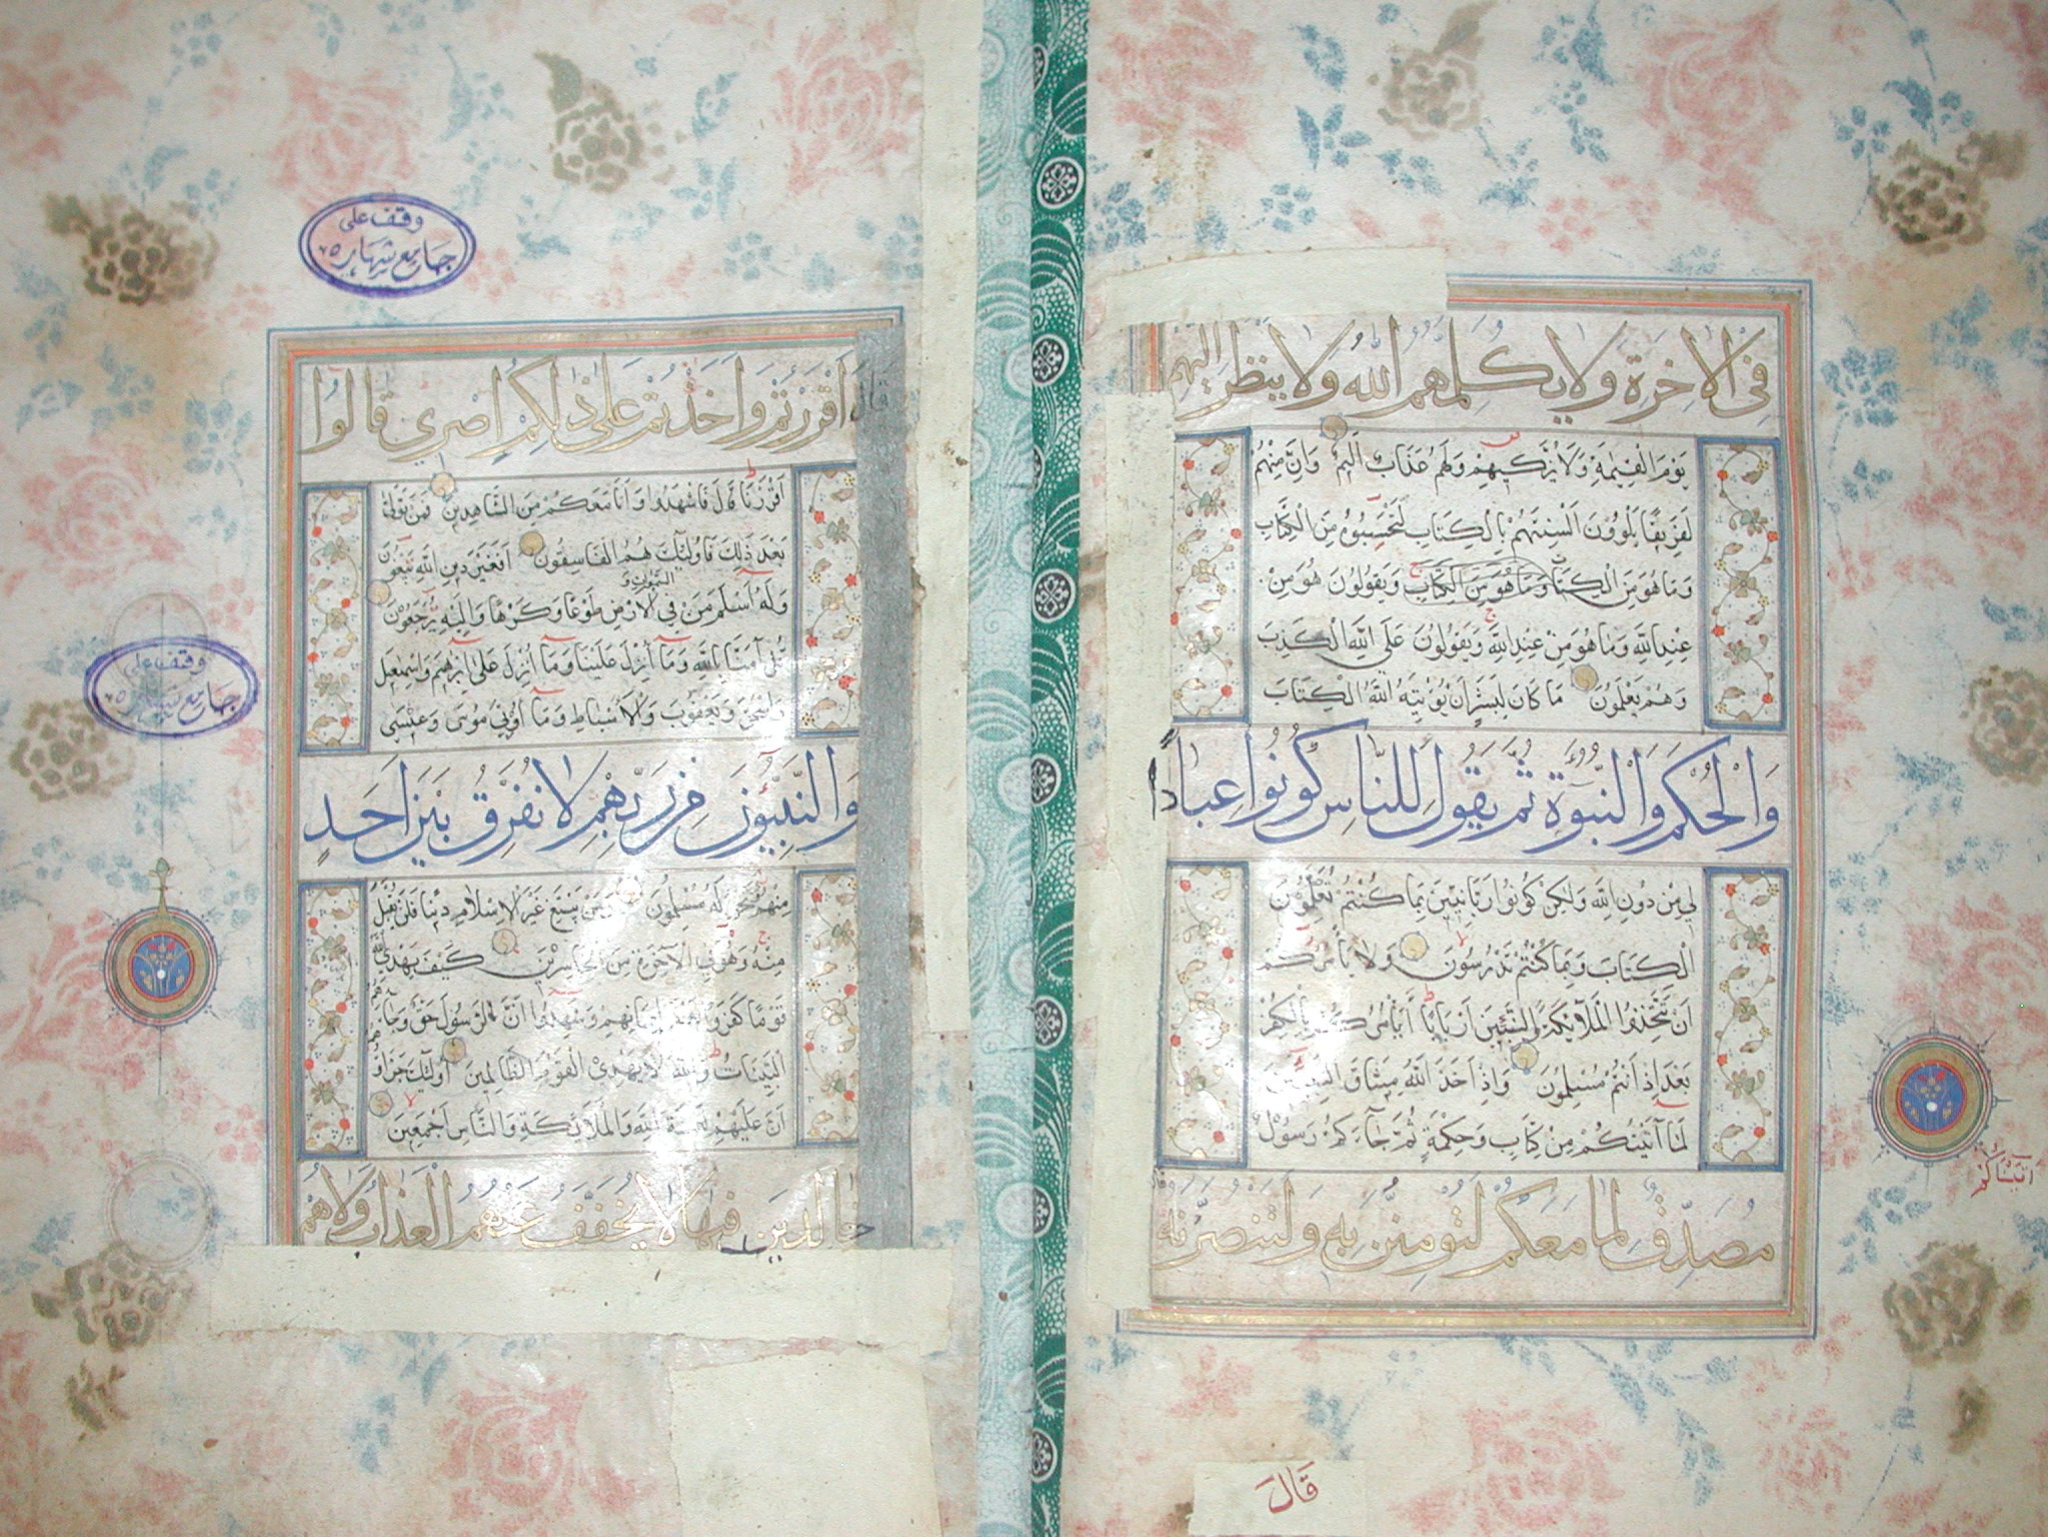 في الاخرة ولا يكلمهم الله ولا ينظر اليهم
يَوْمَ الْقِيٰمَةِ وَلَا يُزَكِّيهِمْ وَلَهُمْ عَذَابٌ اَلِيمٌ وَاِنَّ مِنْهُمْ
لَفَرِيقًا يَلْوُونَ اَلْسِنَتَهُمْ بِالْكِتَابِ لِتَحْسَبُوهُ مِنَ الْكِتَابِ
وَمَا هُوَ مِنَ الْكِتَابِ وَمَا هُوَ مِنَ الْكِتَابِ وَيَقُولُونَ هُوَ مِنْ
عِنْدِ اللّٰهِ وَمَا هُوَ مِنْ عِنْدِ اللّٰهِ وَيَقُولُونَ عَلَى اللّٰهِ الْكَذِبَ
وَهُمْ يَعْلَمُونَ مَا كَانَ لِبَشَرٍ اَنْ يُؤْتِيَهُ اللّٰهُ الْكِتَابَ
وَالْحُكْمَ وَالنُّبُوَّةَ ثُمَّ يَقُولَ لِلنَّاسِ كُونُوا عِبَادًا
لِي مِنْ دُونِ اللّٰهِ وَلٰكِنْ كُونُوا رَبَّانِيِّينَ بِمَا كُنْتُمْ تُعَلِّمُونَ
الْكِتَابَ وَبِمَا كُنْتُمْ تَدْرُسُونَ وَلَا يَأْمُرَكُمْ
اَنْ تَتَّخِذُوا الْمَلَآئِكَةَ وَالنَّبِيِّينَ اَرْبَابًا اَيَأْمُرُكُمْ بِالْكُفْرِ
بَعْدَ اِذْ اَنْتُمْ مُسْلِمُونَ وَاِذْ اَخَذَ اللّٰهُ مِيثَاقَ النَّبِيِّينَ
لَمَا آتَيْتُكُمْ مِنْ كِتَابٍ وَحِكْمَةٍ ثُمَّ جَآءَكُمْ رَسُولٌ
اتَيْنَاكُمْ
مُصَدِّقٌ لِمَا مَعَكُمْ لَتُؤْمِنُنَّ بِهِ وَلَتَنْصُرُنَّهُ
قَالَ
وقف على
جامع شهاره
قَالَ اَاَقْرَرْتُمْ وَاَخَذْتُمْ عَلٰى ذٰلِكُمْ اِصْرِي قَالُوا
اَقْرَرْنَا قَالَ فَاشْهَدُوا وَاَنَا مَعَكُمْ مِنَ الشَّاهِدِينَ فَمَنْ تَوَلّٰى
بَعْدَ ذٰلِكَ فَاُولٰئِكَ هُمُ الْفَاسِقُونَ اَفَغَيْرَ دِينِ اللّٰهِ يَبْغُونَ
وَلَهُ اَسْلَمَ مَنْ فِي السموات و الْاَرْضِ طَوْعًا وَكَرْهًا وَاِلَيْهِ يُرْجَعُونَ
قُلْ آمَنَّا بِاللّٰهِ وَمَا اُنْزِلَ عَلَيْنَا وَمَا اُنْزِلَ عَلٰى اِبْرٰهِيمَ وَاِسْمٰعِيلَ
وَاِسْحٰقَ وَيَعْقُوبَ وَالْاَسْبَاطِ وَمَا اُوتِيَ مُوسٰى وَعِيسٰى
وقف على
جامع شهاره
وَالنَّبِيُّونَ مِنْ رَبِّهِمْ لَا نُفَرِّقُ بَيْنَ اَحَدٍ
مِنْهُمْ وَنَحْنُ لَهُ مُسْلِمُونَ وَمَنْ يَبْتَغِ غَيْرَ الْاِسْلَامِ دِينًا فَلَنْ يُقْبَلَ
مِنْهُ وَهُوَ فِي الْآخِرَةِ مِنَ الْخَاسِرِينَ كَيْفَ يَهْدِي الله
قَوْمًا كَفَرُوا بَعْدَ اِيمَانِهِمْ وَشَهِدُوا اَنَّ الرَّسُولَ حَقٌّ وَجَآءَهُمُ
الْبَيِّنَاتُ وَاللّٰهُ لَا يَهْدِي الْقَوْمَ الظَّالِمِينَ اُولٰئِكَ جَزَاؤُهُمْ
اَنَّ عَلَيْهِمْ لَعْنَةَ اللّٰهِ وَالْمَلَائِكَةِ وَالنَّاسِ اَجْمَعِينَ
خَالِدِينَ فِيهَا لَا يُخَفَّفُ عَنْهُمُ الْعَذَابُ وَلَا هُمْ